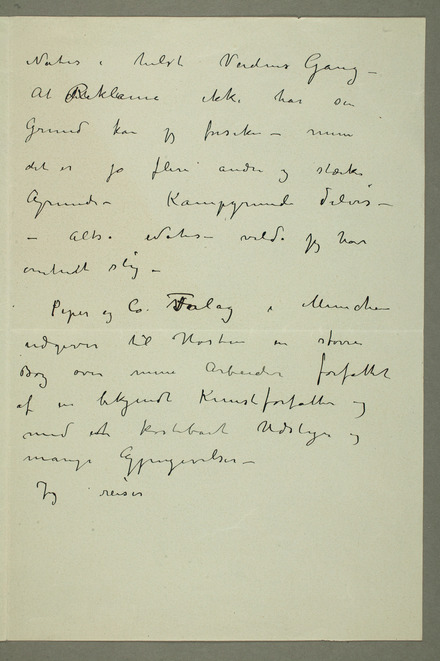 Notis i helst Verdens Gang –
At Reklame ikke har sin
Grund kan jeg forsikre – men
det er jo flere andre og stærke
Grunde – Kampgrunde delvis –
– altså Notis – vilde jeg har
omtrent slig –
Piper og Co. Forlag i München
udgiver til Høsten en større
Bog over mine Arbeider forfattet
af en bekjendt Kunstforfatter og
med et kostbart Udstyr og
mange Gjengivelser –
Jeg reiser